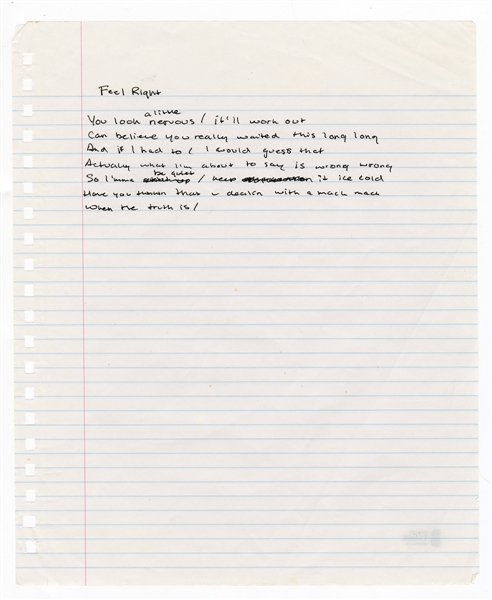 Feel Right
You look a little nervous / it'll work out
Can believe you really wanted this long long
And if I had to / I would guess that
Actually what I'm about to say is wrong wrong
So I'mma be quiet / keep it ice cold
Have you human than u dealin with a mack mack
When the truth is /